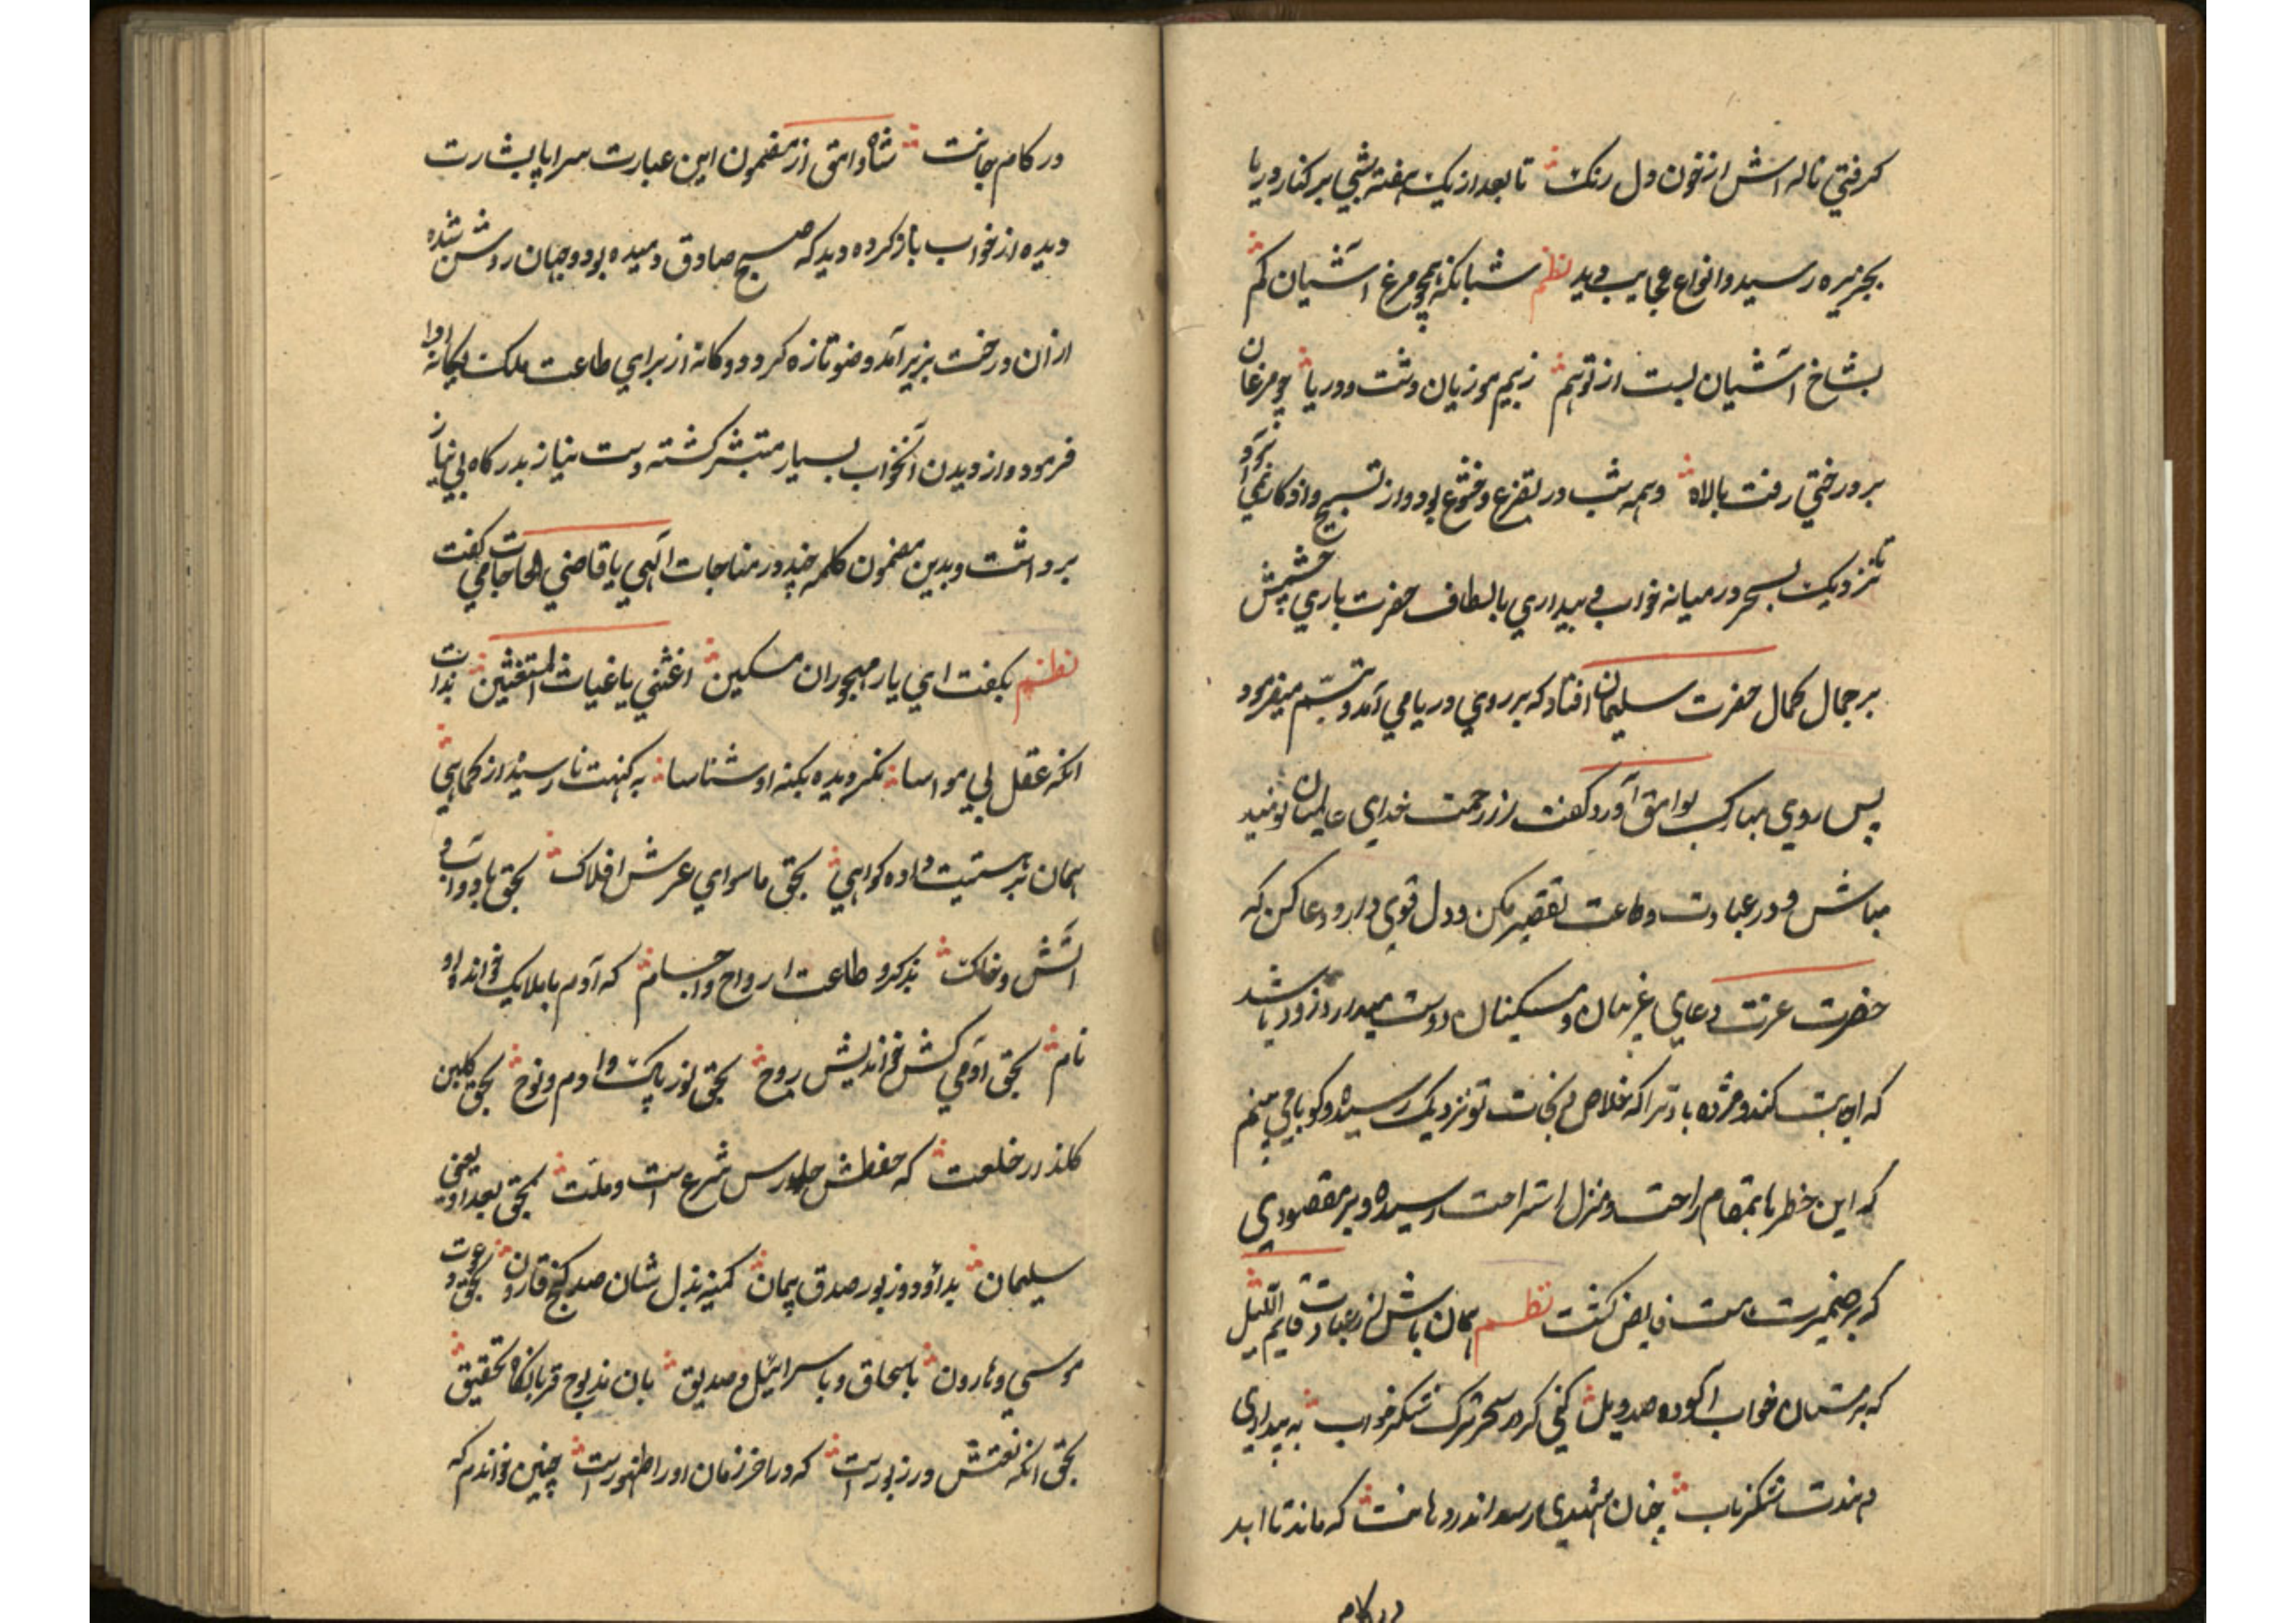 کرفتی ناله اش از خون دل رنک تا بعد از یک هفته شبی بر کنار دریا
بجزیره رسید و انواع عجایب دید نظم شبانکه همچو مرغ آشیان کم
بشاخ آشیان بست از توهم ز بیم موزیان دشت و دریا چو مرغان
بر درختی رفت بالاه و همه شب در تضرع و خشوع بود و از تسبیح و اذکار نمی آسود
تا نزدیک بسحر در میانه خواب و بیداری بالطاف حضرت باری چشمش
بر جمال کمال حضرت سلیمان افتاد که بر روی دریا می آمد و تبسم میفرمود
پس روی مبارک بوامق آورد و کفت از رحمت خدای عالمیان نومید
مباش و در عبادت و طاعت تقصیر مکن و دل قوی دار و دعا کن که
حضرت عزت دعای غریبان و مسکینان دوست میدارد زود باشد
که اجابت کند و مژده باد ترا که خلاص و نجات تو نزدیک رسیده و کویا می بینم
که این خطرها بمقام راحت و منزل استراحت رسیده و بر مقصودی
که بر ضمیرت است فایض کشت نظم همان باش از عبادت قایم اللیل
که بر مستان خواب آلوده صد ویل کنی کر در سحر ترک شکر خواب به بیداری
دهندت شکر ناب چنان شهدی رسد اندر دهانت که ماند تا ابد
در کام
در کام جانت شاه وامق از مضمون این عبارت سراپا بشارت
دیده از خواب باز کرده دید که صبح صادق دمیده بود و جهان روشن شده
از آن درخت بزیر آمد و وضو تازه کرد و دوکانه از برای طاعت ملک یکانه ادا
فرمود و از دیدن آنخواب بسیار متبشر کشته دست نیاز بدرکاه بی نیاز
برداشت و بدین مضمون کلمه چند در مناجات الهی یا قاضی الحاجات می کفت
نظم بکفت ای یار مهجوران مسکین اغثنی یا غیاث المستغثین بذات
انکه عقل بی مواسا نکردیده بکنه او شناسا به کنهت نارسیدن از کماهی
همان بر هستیت داده کواهی بحق ماسوای عرش افلاک بحق باد و آب و
آتش و خاک بذکر و طاعت ارواح و اجسام که آدم با ملایک خوانده او
نام بحق آدمی کش خواندیش روح بحق نور پاک آدم و نوح بحق کلبن
کلذار خلعت که حفظش حارس شرع است و ملت بحق بعد او یعنی
سلیمان بداؤد و زبور صدق پیمان کمینه بذل شان صد کنج قارون بحق دعوت
موسی و هارون باسحاق و باسرائیل و صدیق بان مذبوح قربانکاه تحقیق
بحق انکه نعتش در زبور است که در اخر زمان او را ظهور است چنین خواندم که